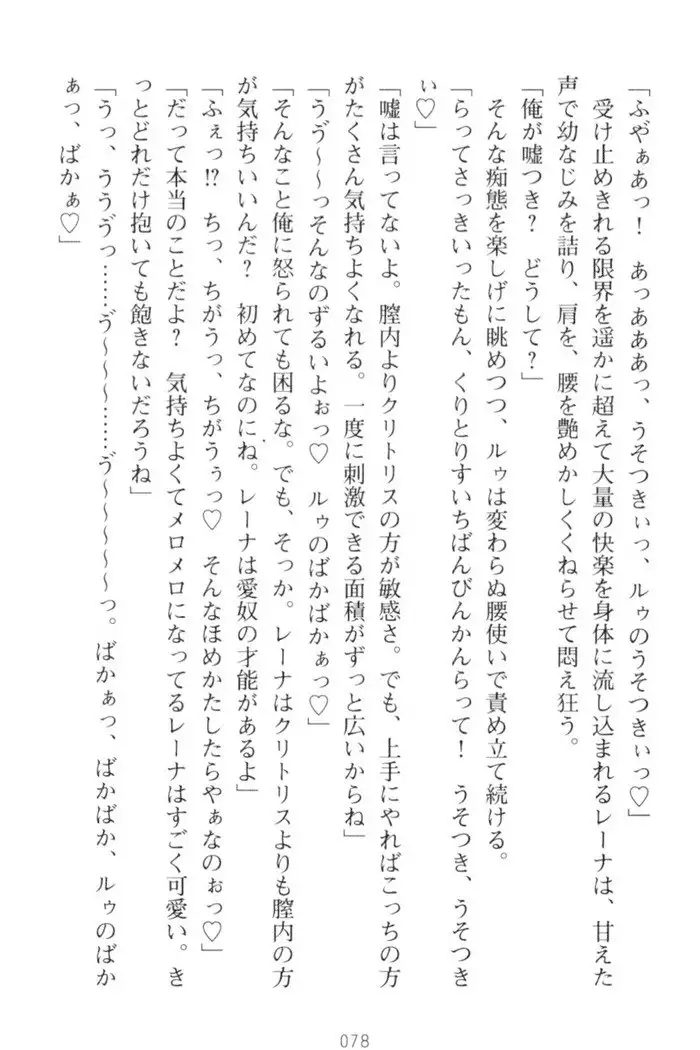 「ふやぁあっ！　あっあああっ、うそつきぃっ、ルゥのうそつきぃっ♡」
　受け止めきれる限界を遥かに超えて大量の快楽を身体に流し込まれるレーナは、甘えた
声で幼なじみを詰り、肩を、腰を艶めかしくくねらせて悶え狂う。
「俺が嘘つき？　どうして？」
　そんな痴態を楽しげに眺めつつ、ルゥは変わらぬ腰使いで責め立て続ける。
「らってさっきいったもん、くりとりすいちばんびんかんらって！　うそつき、うそつき
ぃ♡」
「嘘は言ってないよ。膣内よりクリトリスの方が敏感さ。でも、上手にやればこっちの方
がたくさん気持ちよくなれる。一度に刺激できる面積がずっと広いからね」
「うゔ～～っそんなのずるいよぉっ♡　ルゥのばかばかぁっ♡」
「そんなこと俺に怒られても困るな。でも、そっか。レーナはクリトリスよりも膣内の方
が気持ちいいんだ？　初めてなのにね。レーナは愛奴の才能があるよ」
「ふぇっ!?　ちっ、ちがうっ、ちがうぅっ♡　そんなほめかたしたらやぁなのぉっ♡」
「だって本当のことだよ？　気持ちよくてメロメロになってるレーナはすごく可愛い。き
っとどれだけ抱いても飽きないだろうね」
「うっ、ううゔっ……ゔ～～～……ゔ～～～～～っ。ばかぁっ、ばかばか、ルゥのばか
ぁっ、ばかぁ♡」
078